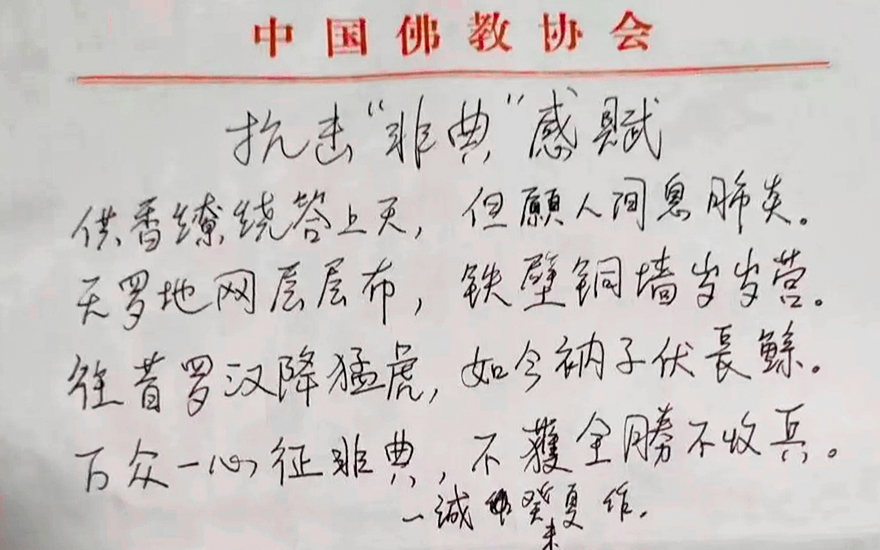 中国佛教协会
抗击“非典”感赋
供香缭绕答上天，但願人间息肺炎。
天罗地网层层布，铁壁铜墙岁岁营。
往昔罗汉降猛虎，如今衲子伏長鲸。
万众一心征非典，不獲全勝不收兵。
一诚 癸未夏作.